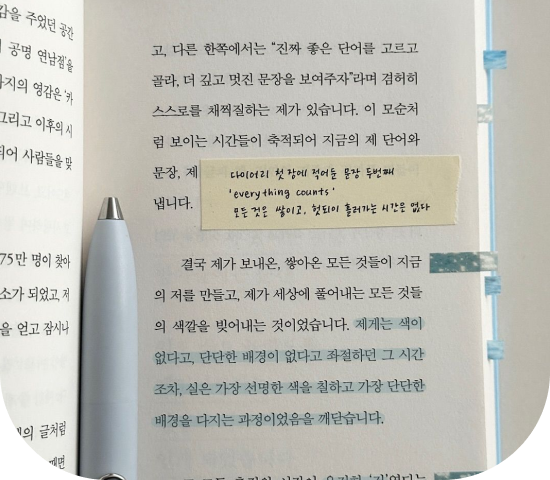 감을 주었던 공간
공명 연남점'을
까지의 영감은 '카
그리고 이후의 시
되어 사람들을 맞
75만 명이 찾아
소가 되었고, 저
을 얻고 잠시나
의 글처럼
고, 다른 한쪽에서는 “진짜 좋은 단어를 고르고
골라, 더 깊고 멋진 문장을 보여주자”라며 겸허히
스스로를 채찍질하는 제가 있습니다. 이 모순처
럼 보이는 시간들이 축적되어 지금의 제 단어와
문장, 제
냅니다.
다이어리 첫 장에 적어둔 문장 두번째
'everything counts'
모든 것은 쌓이고, 헛되이 흘러가는 시간은 없다
결국 제가 보내온, 쌓아온 모든 것들이 지금
의 저를 만들고, 제가 세상에 풀어내는 모든 것들
의 색깔을 빚어내는 것이었습니다. 제게는 색이
없다고, 단단한 배경이 없다고 좌절하던 그 시간
조차, 실은 가장 선명한 색을 칠하고 가장 단단한
배경을 다지는 과정이었음을 깨닫습니다.